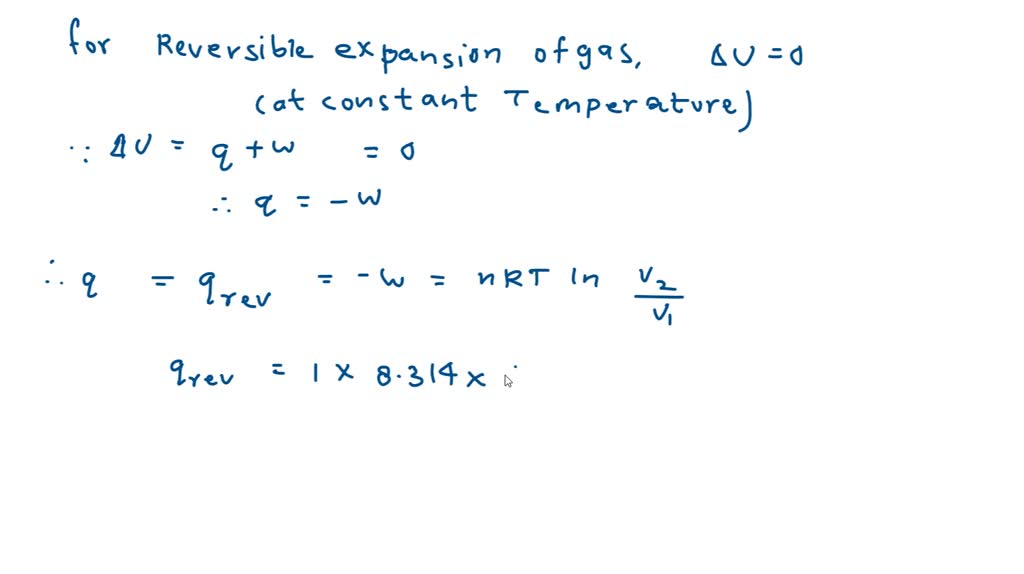 for Reversible expansion of gas, ΔU = 0
(at constant Temperature)
∵ ΔU = q + w = 0
∴ q = - W
∴ q = qrev = - w = nRT ln V2/V1
qrev = 1 × 8.314 ×